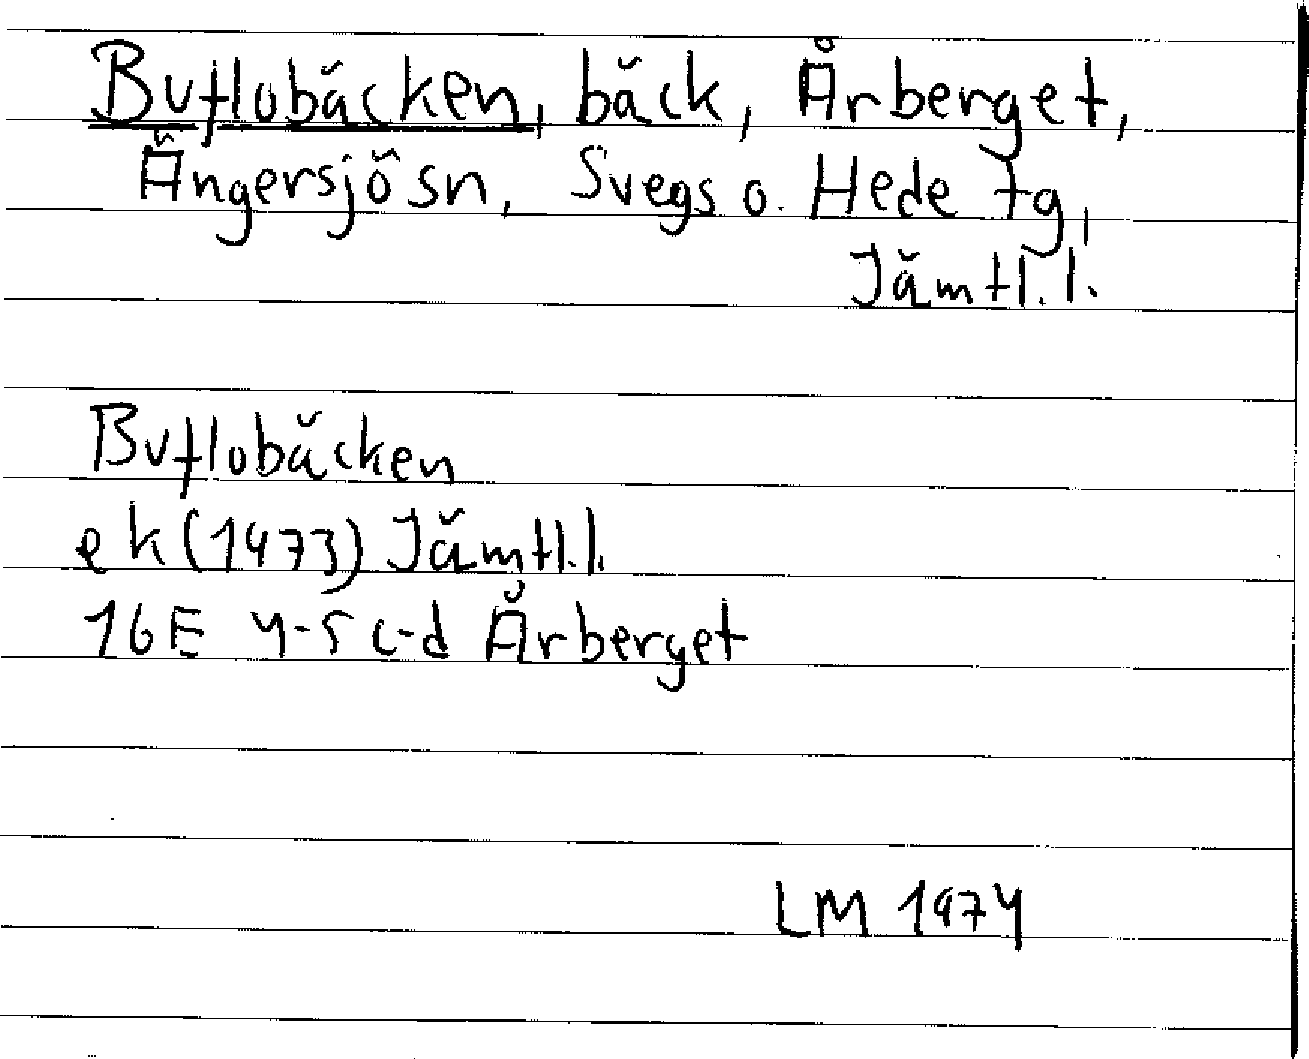 Buflobäcken, bäck, Årberget,
Ängersjö sn, Svegs o. Hede tg,
Jämtl. l.
Buflobäcken
ek (1973) Jämtl. l.
16E 4-5 c-d Årberget
LM 1974